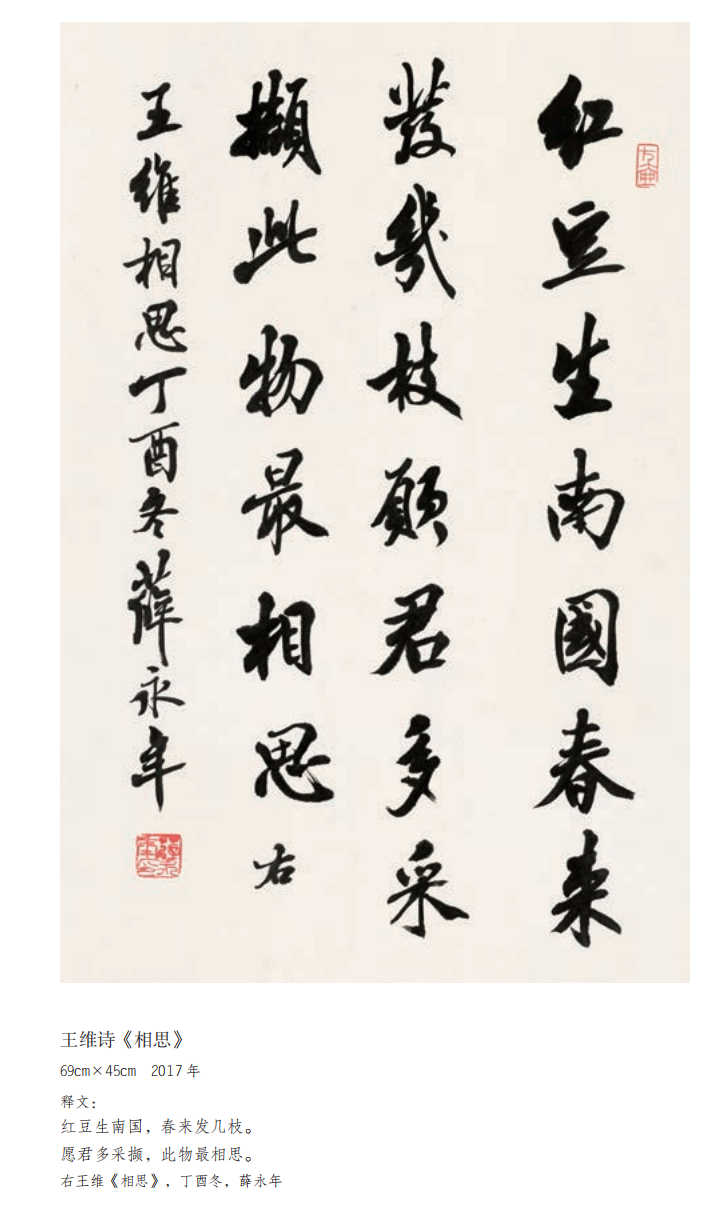 红豆生南國春来
發幾枝願君多采
擷此物最相思右
王維相思丁酉冬薛永年
王维诗《相思》
69cm×45cm 2017 年
释文：
红豆生南国，春来发几枝。
愿君多采撷，此物最相思。
右王维《相思》，丁酉冬，薛永年